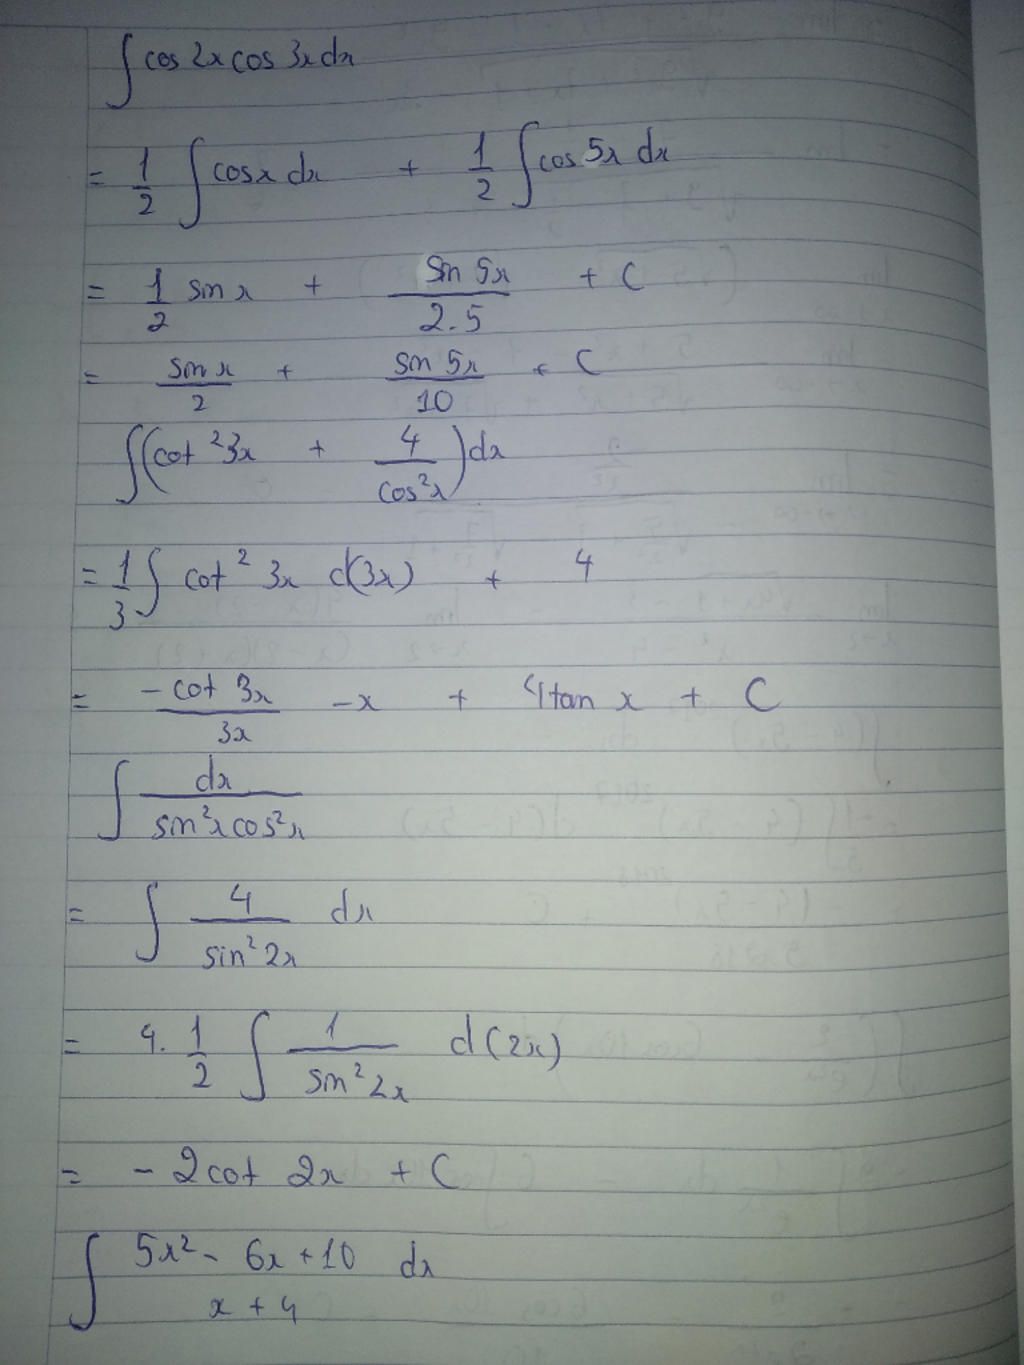 ∫ cos 2x cos 3x dx
= 1/2 ∫ cosx dx + 1/2 ∫ cos 5x dx
= 1/2 sin x + sin 5x / 2.5 + C
= sin x / 2 + sin 5x / 10 + C
∫ (cot² 3x + 4 / cos²x) dx
= 1/3 ∫ cot² 3x d(3x) + 4
= -cot 3x / 3x - x + 4tan x + C
∫ dx / sin²x cos²x
= ∫ 4 / sin² 2x dx
= 4. 1/2 ∫ 1 / sin² 2x d(2x)
= - 2 cot 2x + C
∫ 5x² - 6x + 10 dx
x + 4